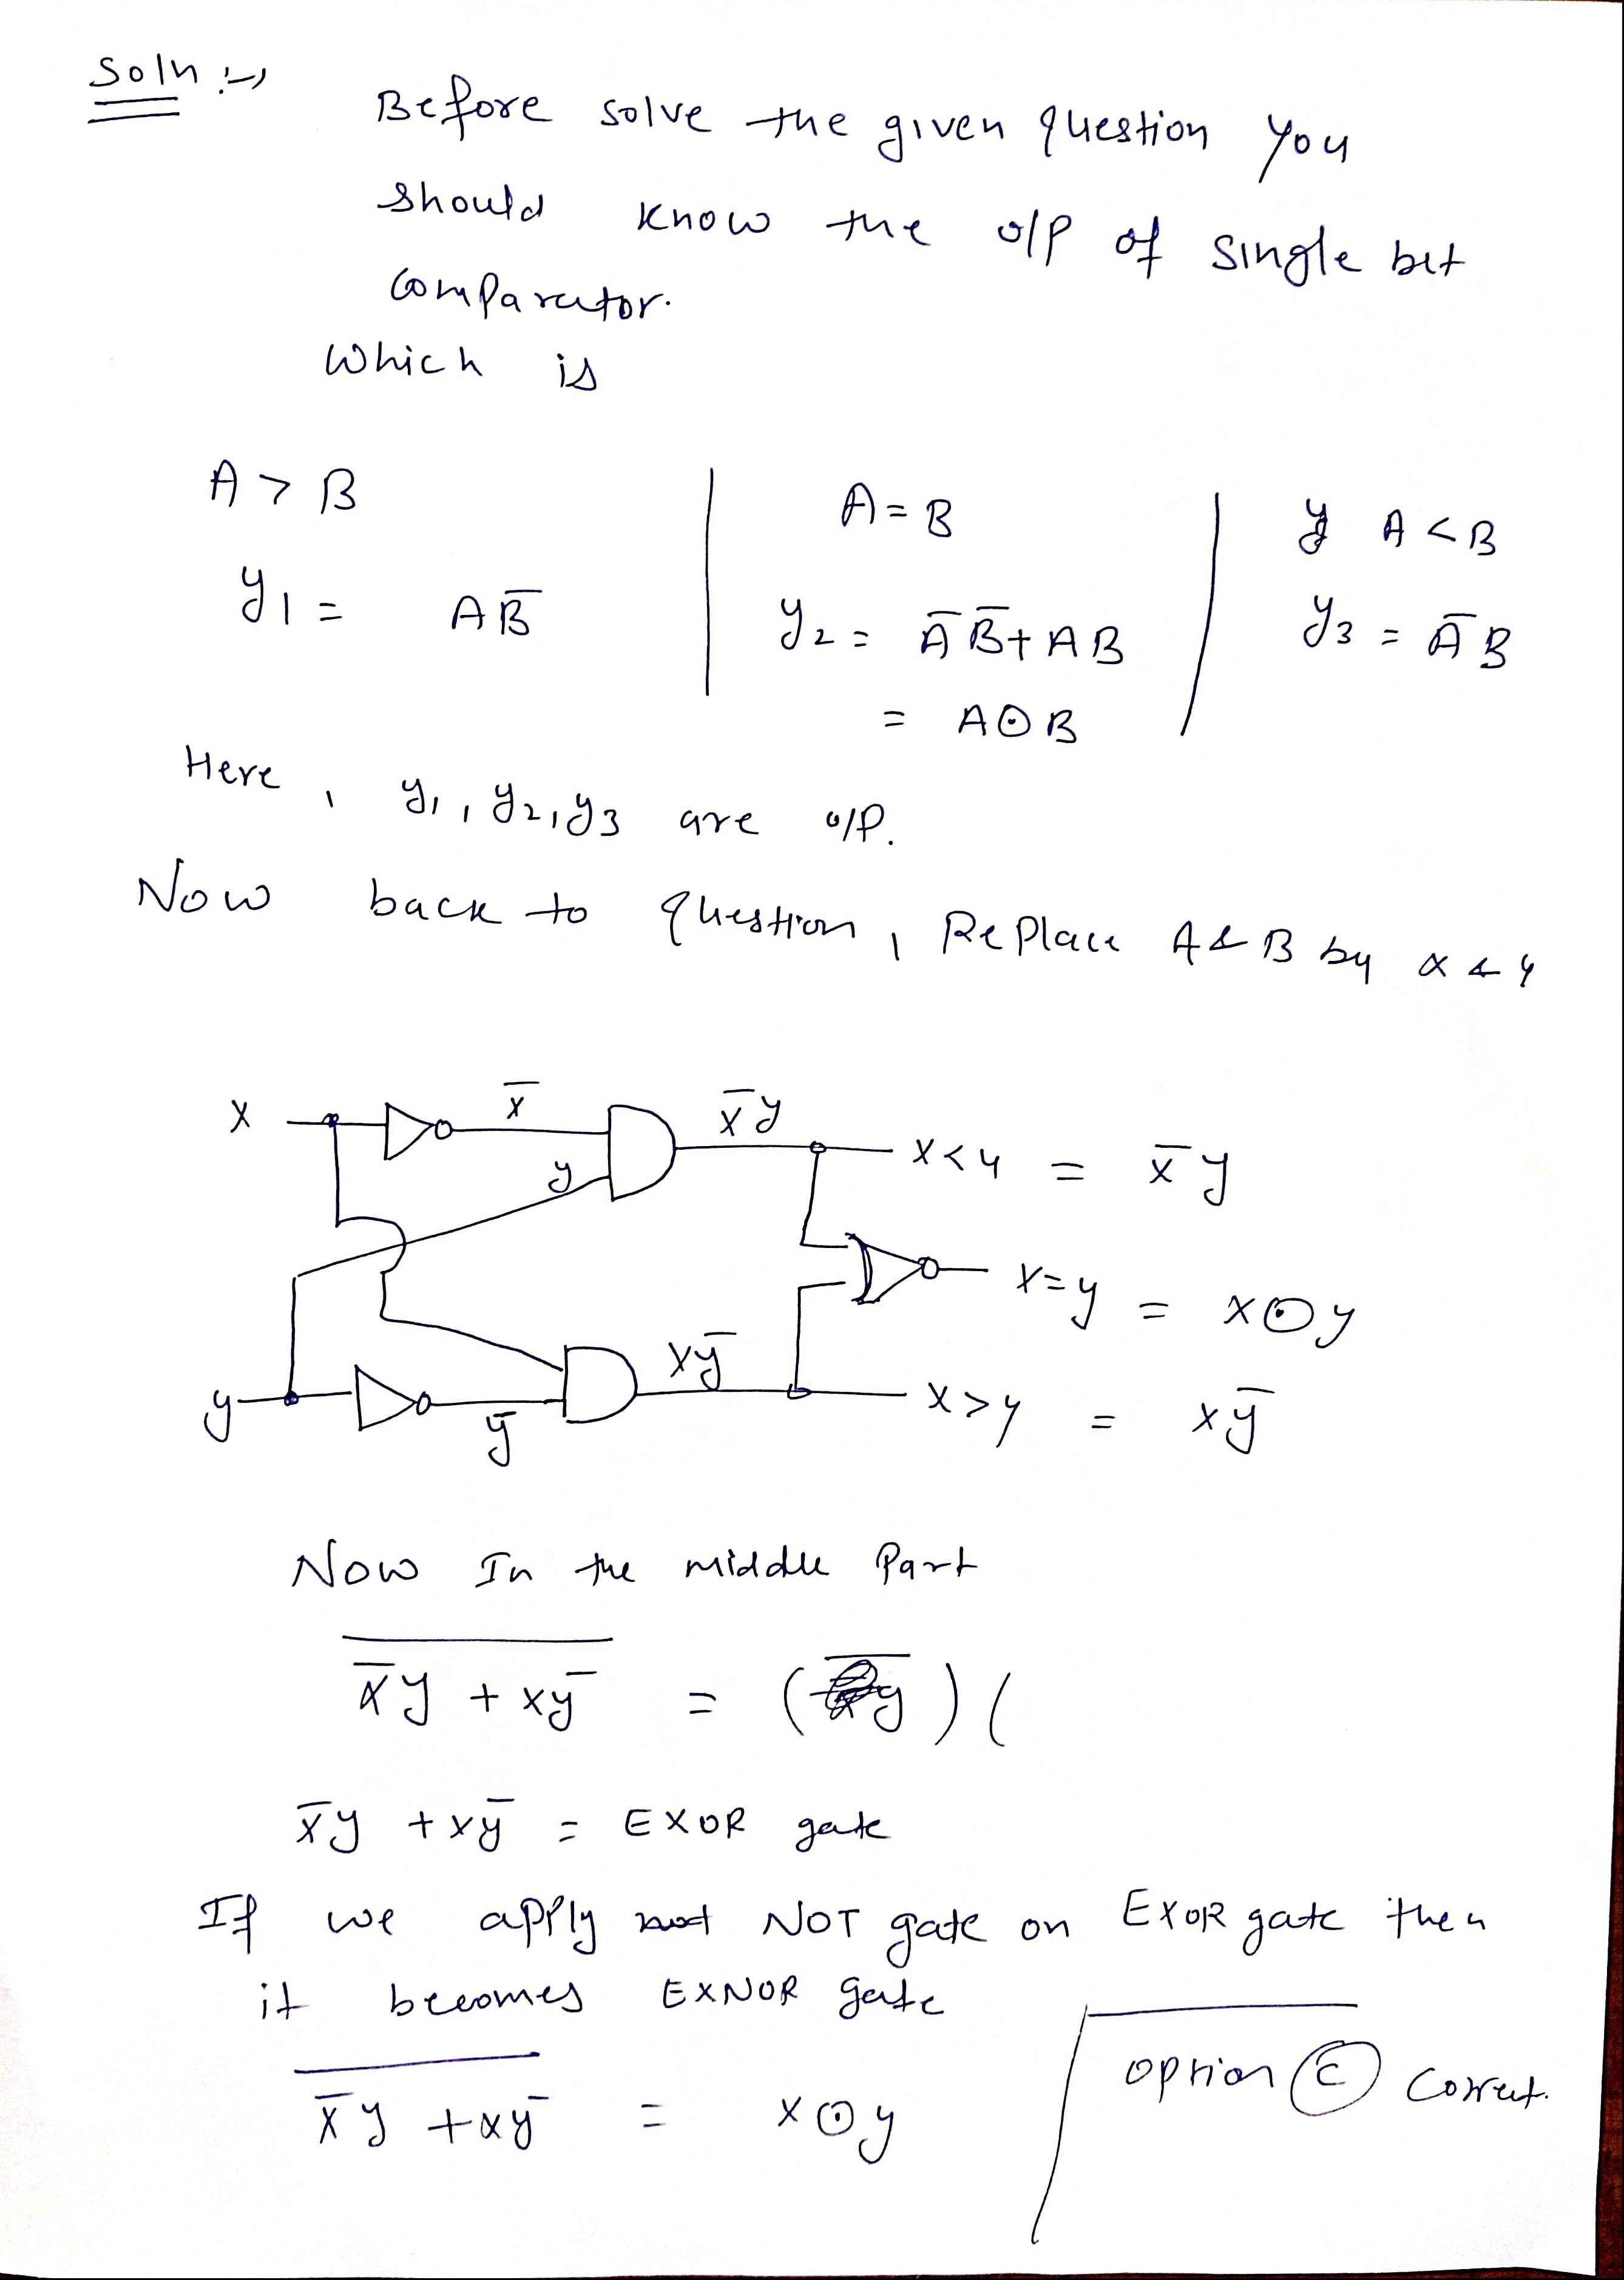 Soln :-)
Before solve the given question you
should know the o/p of single bit
comparator.
Which is
A > B
y1 = AB̅
A = B
y2 = A̅ B̅ + AB
= A⊙B
A < B
y3 = A̅ B
Here, y1, y2, y3 are o/p.
Now back to question, Replace A & B by x & y
x
x̅
y
x̅y
x<y = x̅y
x=y = x⊙y
y
y̅
xy̅
x>y = xy̅
Now In the middle Part
\overline{x̅y + xy̅} = ( y ) (
x̅y + xy̅ = EXOR gate
If we apply NOT gate on EXOR gate then
it becomes EXNOR gate
\overline{x̅y + xy̅} = x⊙y
option (C) correct.